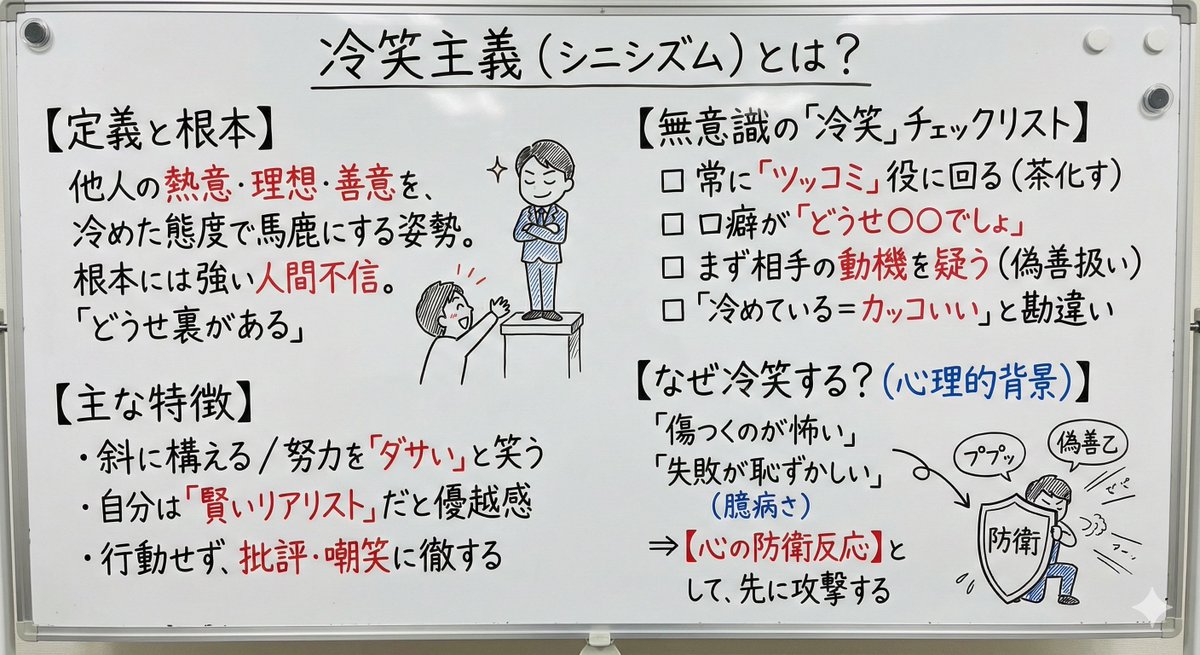 冷笑主義（シニシズム）とは？
【定義と根本】
他人の熱意・理想・善意を、
冷めた態度で馬鹿にする姿勢。
根本には強い人間不信。
「どうせ裏がある」
【主な特徴】
・斜に構える/努力を「ダサい」と笑う
・自分は「賢いリアリスト」だと優越感
・行動せず、批評・嘲笑に徹する
【無意識の「冷笑」チェックリスト】
□ 常に「ツッコミ」役に回る（茶化す）
□ 口癖が「どうせ〇〇でしょ」
□ まず相手の動機を疑う（偽善扱い）
□ 「冷めている＝カッコいい」と勘違い
【なぜ冷笑する？（心理的背景）】
「傷つくのが怖い」
「失敗が恥ずかしい」
（臆病さ）
⇒【心の防衛反応】と
して、先に攻撃する
ププッ
偽善乙
防衛